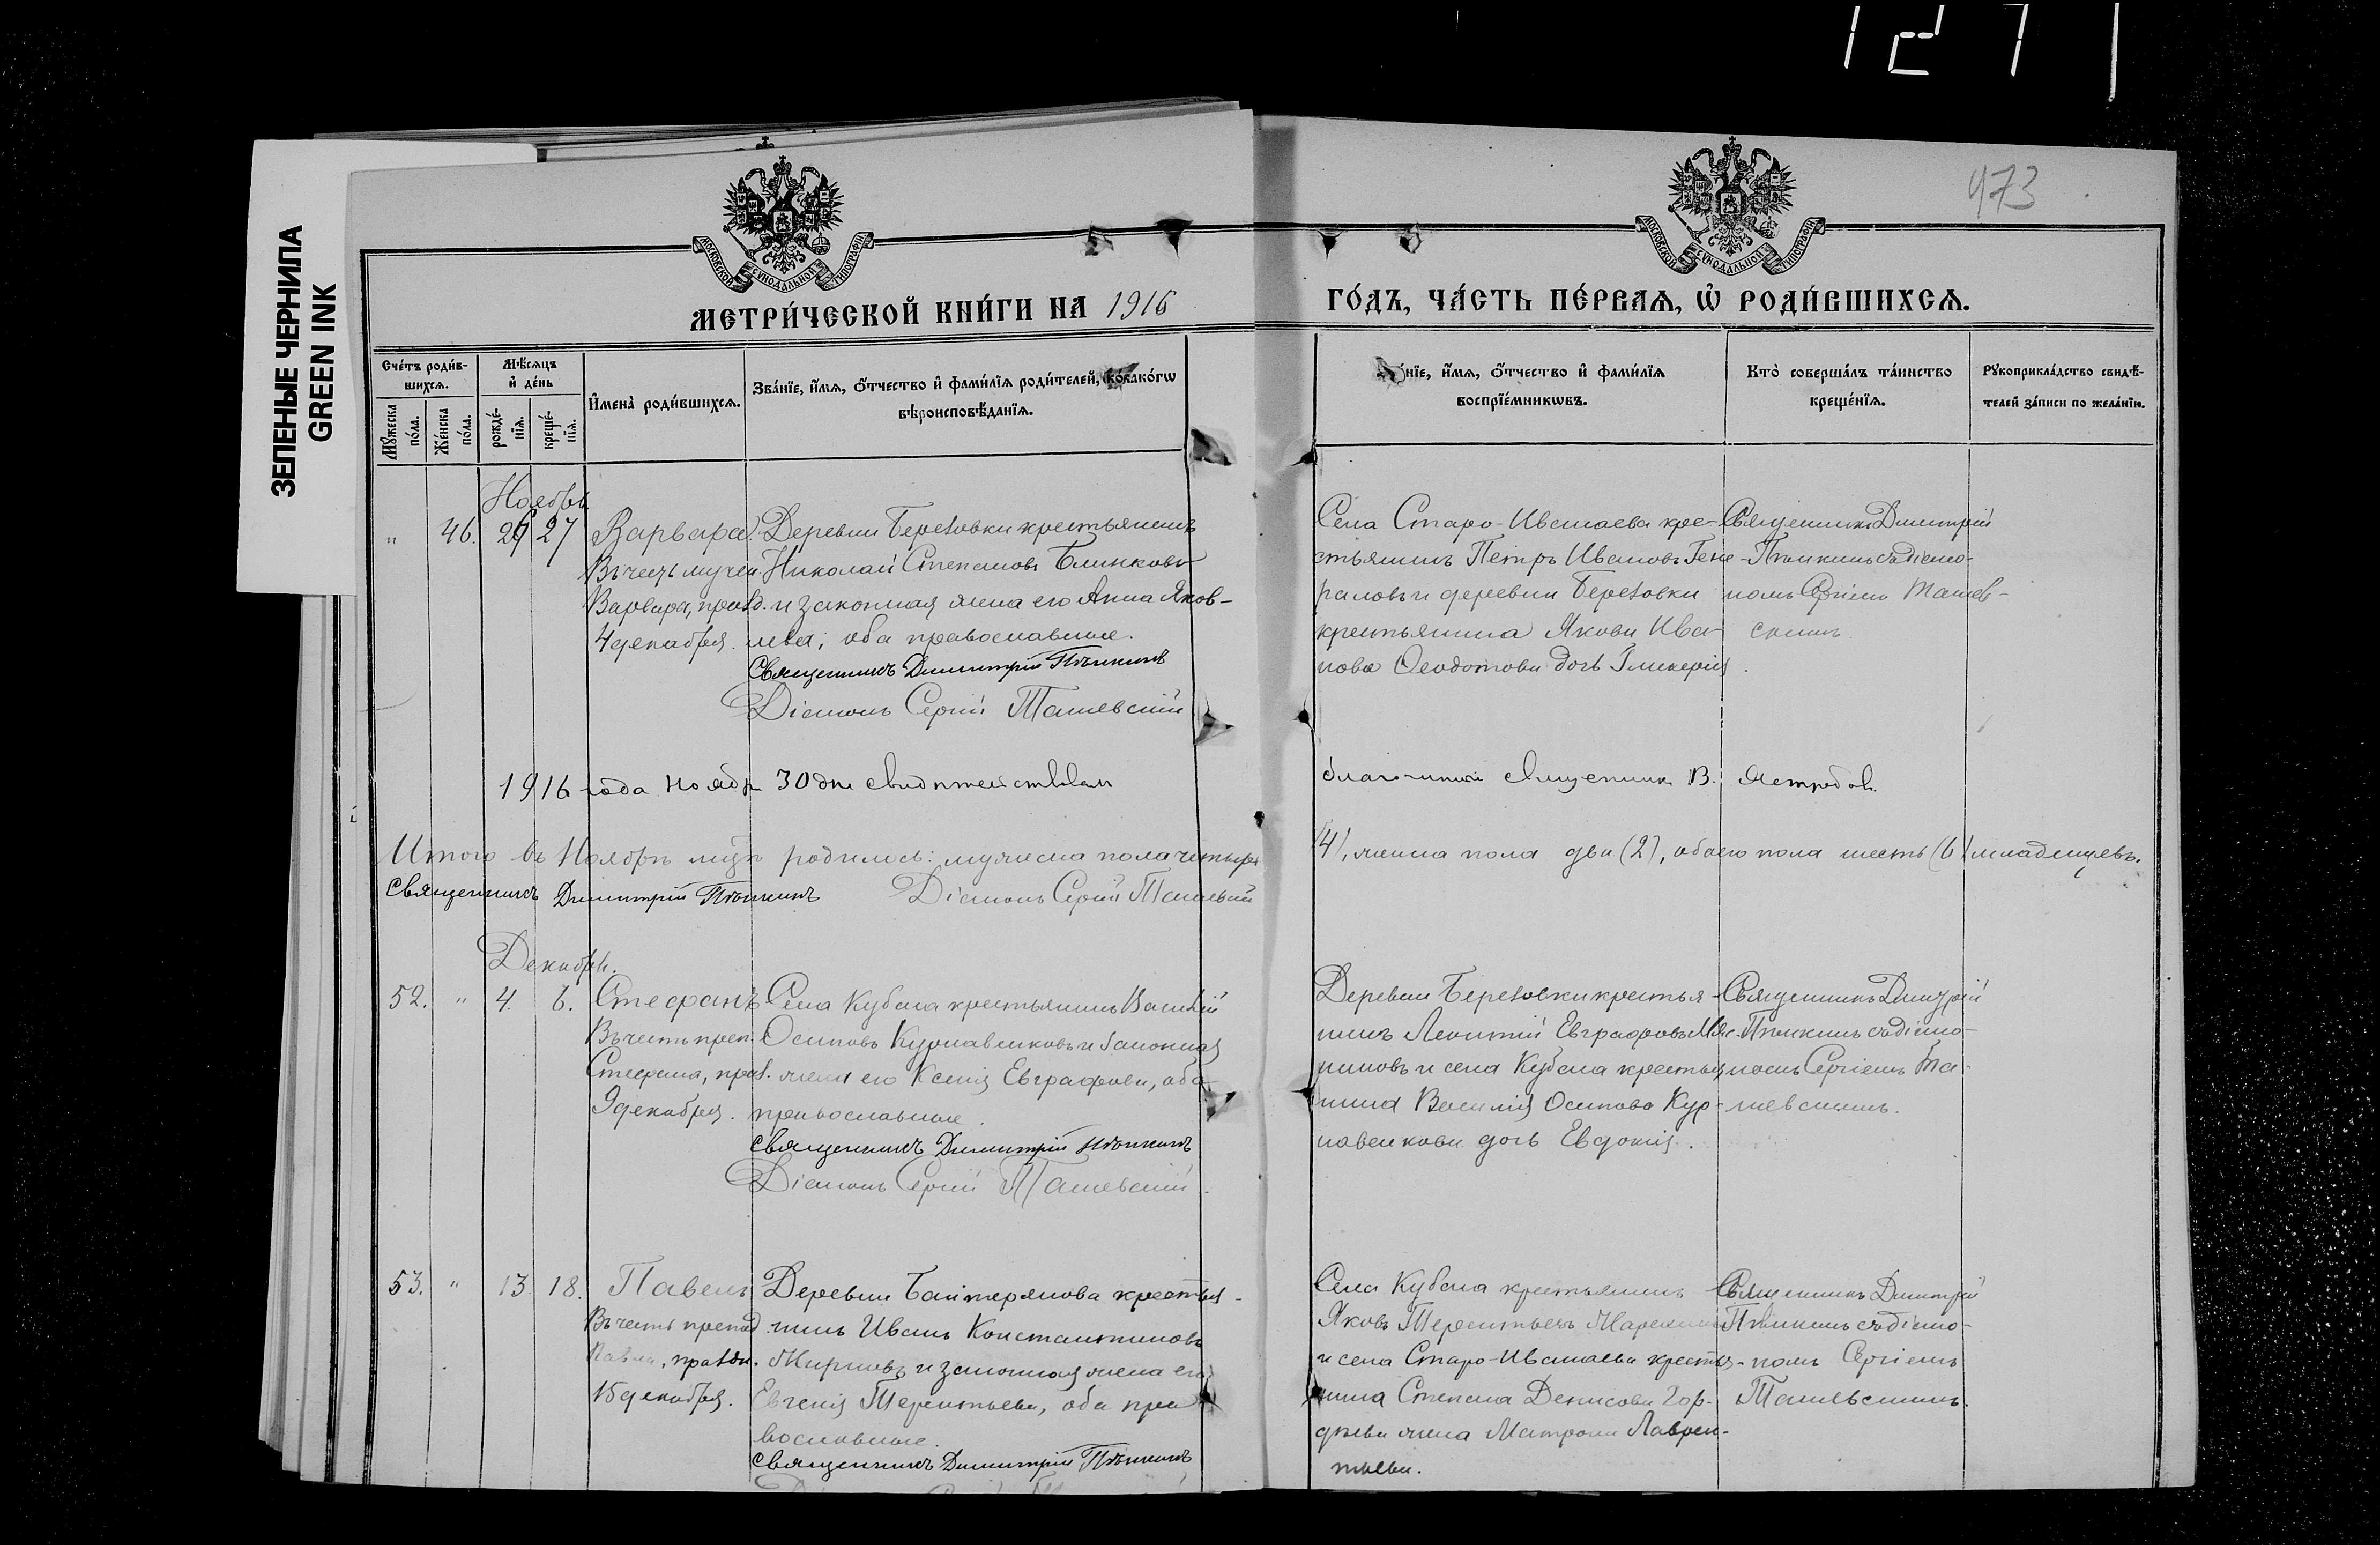 1271
973
ЗЕЛЕНЫЕ ЧЕРНИЛА
GREEN INK
МОСКОВСКОЙ СѴНОДАЛЬНОЙ ТИПОГРАФІИ
МОСКОВСКОЙ СѴНОДАЛЬНОЙ ТИПОГРАФІИ
МЕТРИ́ЧЕСКОЙ КНИ́ГИ НА 1916
ГО́ДЪ, ЧА́СТЬ ПЕ́РВАѦ, Ѿ РОДИ́ВШИХСѦ.
Сче́тъ роди́в-
шихсѧ.
Мꙋ́жеска
по́ла.
Же́нска
по́ла.
Мѣ́сѧцъ
и҆ де́нь
рожде́-
нїѧ.
креще́-
нїѧ.
И҆мена̀ роди́вшихсѧ.
Зва́нїе, и҆́мѧ, ѻ҆́тчество и҆ фами́лїѧ роди́телей, и҆ како́гѡ
вѣроисповѣ́данїѧ.
нїе, и҆́мѧ, ѻ҆́тчество и҆ фами́лїѧ
воспрїе́мникѡвъ.
Кто̀ соверша́лъ та́инство
креще́нїѧ.
Рꙋкоприкла́дство свидѣ́-
телей за́писи по жела́нїю.
Ноябрь
" 46. 26 27 Варвара.
Въ честь мучен.
Варвары, празд.
4 декабря.
Деревни Березовки крестьянинъ
Николай Степановъ Блинковъ
и законная жена его Анна Яков-
лева; оба православные.
Священникъ Димитрій Пѣнкинъ
Діаконъ Сергій Ташевскій
Села Старо-Ивашаева кре-
стьянинъ Петръ Ивановъ Гене-
раловъ и деревни Березовки
крестьянина Якова Ива-
нова Ѳеодотова дочь Гликерія.
Священникъ Димитрій
Пѣнкинъ съ діако-
номъ Сергіемъ Ташев-
скимъ.
1916 года Ноябр 30 дня свидѣтельствовалъ
благочинный священник В. Ястребов.
Итого въ Ноябрѣ мцѣ родилось: мужеска пола четыре
(4), женска пола два (2), обоего пола шесть (6) младенцевъ.
Священникъ Димитрій Пѣнкинъ Діаконъ Сергій Ташевскій
Декабрь.
52. " 4. 6. Стефанъ
Въ честь преп.
Стефана, празд.
9 декабря.
Села Кубаса крестьянинъ Василій
Осиповъ Курлавенковъ и законная
жена его Ксенія Евграфова, оба
православные.
Священникъ Димитрій Пѣнкинъ
Діаконъ Сергій Ташевскій.
Деревни Березовки крестья-
нинъ Леонтій Евграфовъ
и села Кубаса крестья-
нина Василія Осипова Кур-
лавенкова дочь Евдокія.
Священникъ Димитрій
Пѣнкинъ съ діако-
номъ Сергіемъ Та-
шевскимъ.
53. " 13. 18. Павелъ
Въ честь препод.
Павла, праздн.
15 декабря.
Деревни Байтерякова крестья-
нинъ Иванъ Константиновъ
и законная жена его
Евгенія Терентьева, оба пра-
вославные.
Священникъ Димитрій Пѣнкинъ
Села Кубаса крестьянинъ
Яковъ Терентьевъ
и села Старо-Ивашаева крестья-
нина Степана Денисова Гор-
дѣева жена Матрона Лаврен-
тьева.
Священникъ Димитрій
Пѣнкинъ съ діако-
номъ Сергіемъ
Ташевскимъ.